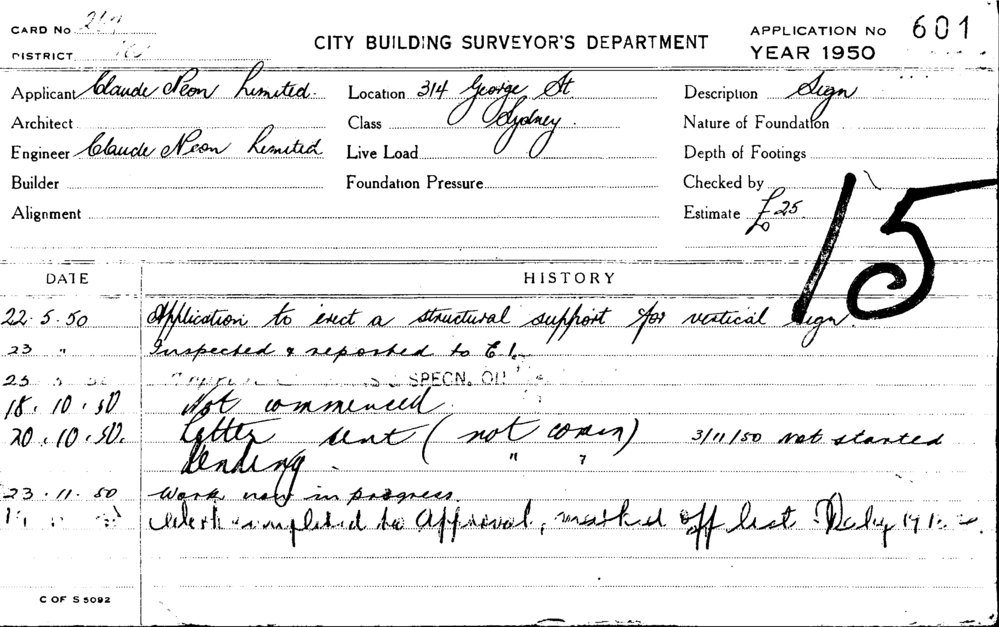 CARD No
APPLICATION No 601
DISTRICT
CITY BUILDING SURVEYOR'S DEPARTMENT
YEAR 1950
Applicant Claude Neon Limited. Location 314 George St Description Sign
Architect Class Sydney. Nature of Foundation
Engineer Claude Neon Limited Live Load Depth of Footings
Builder Foundation Pressure Checked by
Alignment Estimate £25.
15
DATE HISTORY
22.5.50 Application to erect a structural support for vertical sign.
23 " Inspected & reported to
SPECN.
18.10.50 Not commenced.
20.10.50. Letter sent (not comm) 3/11/50 not started
Pending. " "
23.11.50 Work now in progress.
Work completed to Approval, marked off list
C OF S 5092